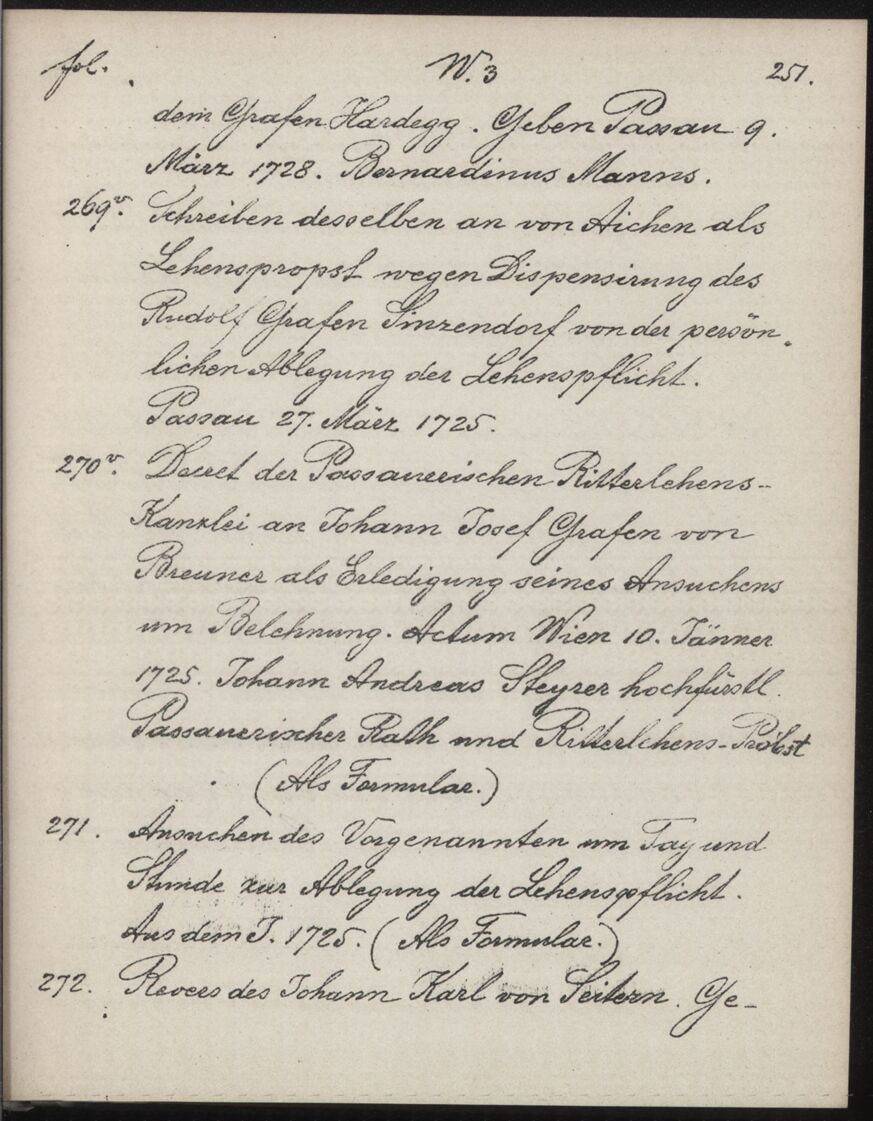 fol. W. 3 251.
dem Grafen Hardegg. Geben Passau 9.
März 1728. Bernardinus Manns.
269v. Schreiben desselben an von Aichen als
Lehenspropst wegen Dispensirung des
Rudolf Grafen Sinzendorf von der persön„
lichen Ablegung der Lehenspflicht.
Passau 27. März 1725.
270v. Decret der Passauerischen Ritterlehens-
Kanzlei an Johann Josef Grafen von
Breuner als Erledigung seines Ansuchens
um Belehnung. Actum Wien 10. Jänner
1725. Johann Andreas Steyrer hochfürstl.
Passauerischer Rath und Ritterlehens-Probst
(Als Formular.)
271. Ansuchen des Vorgenannten um Tag und
Stunde zur Ablegung der Lehenspflicht.
Aus dem J. 1725. (Als Formular.)
272. Revers des Johann Karl von Seitern. Ge-